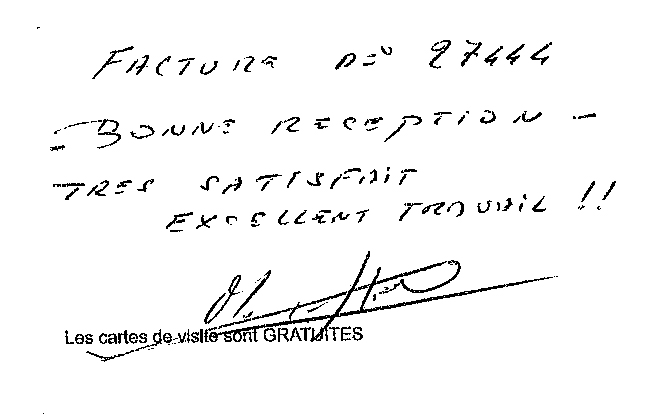 FACTURE DE 27444
- BONNE RECEPTION -
TRES SATISFAIT
EXCELLENT TRAVAIL !!
Les cartes de visite sont GRATUITES